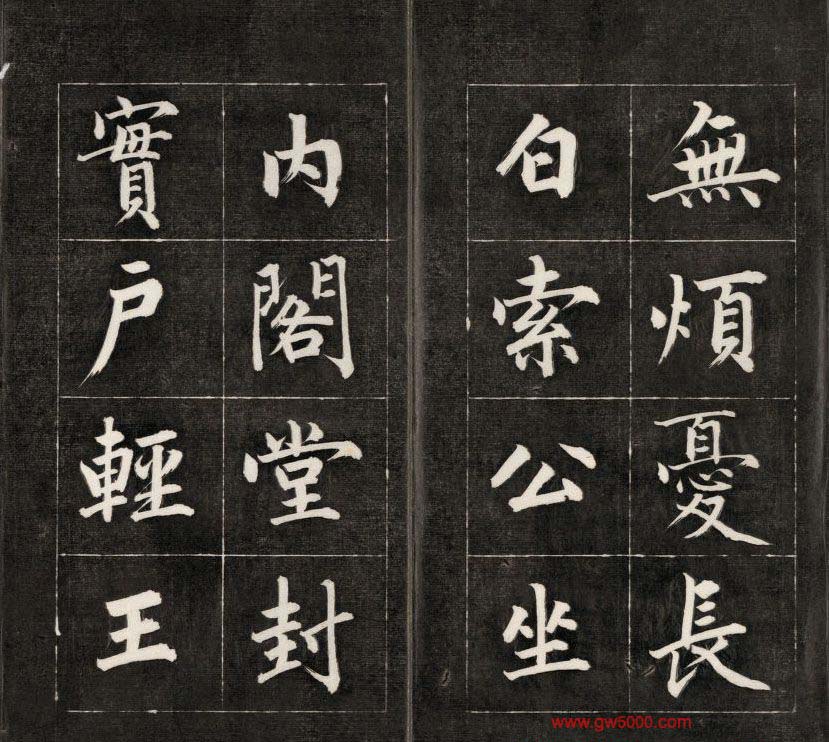 無煩憂長
白索公坐
内閣堂封
實戶輕王
www.gw5000.com